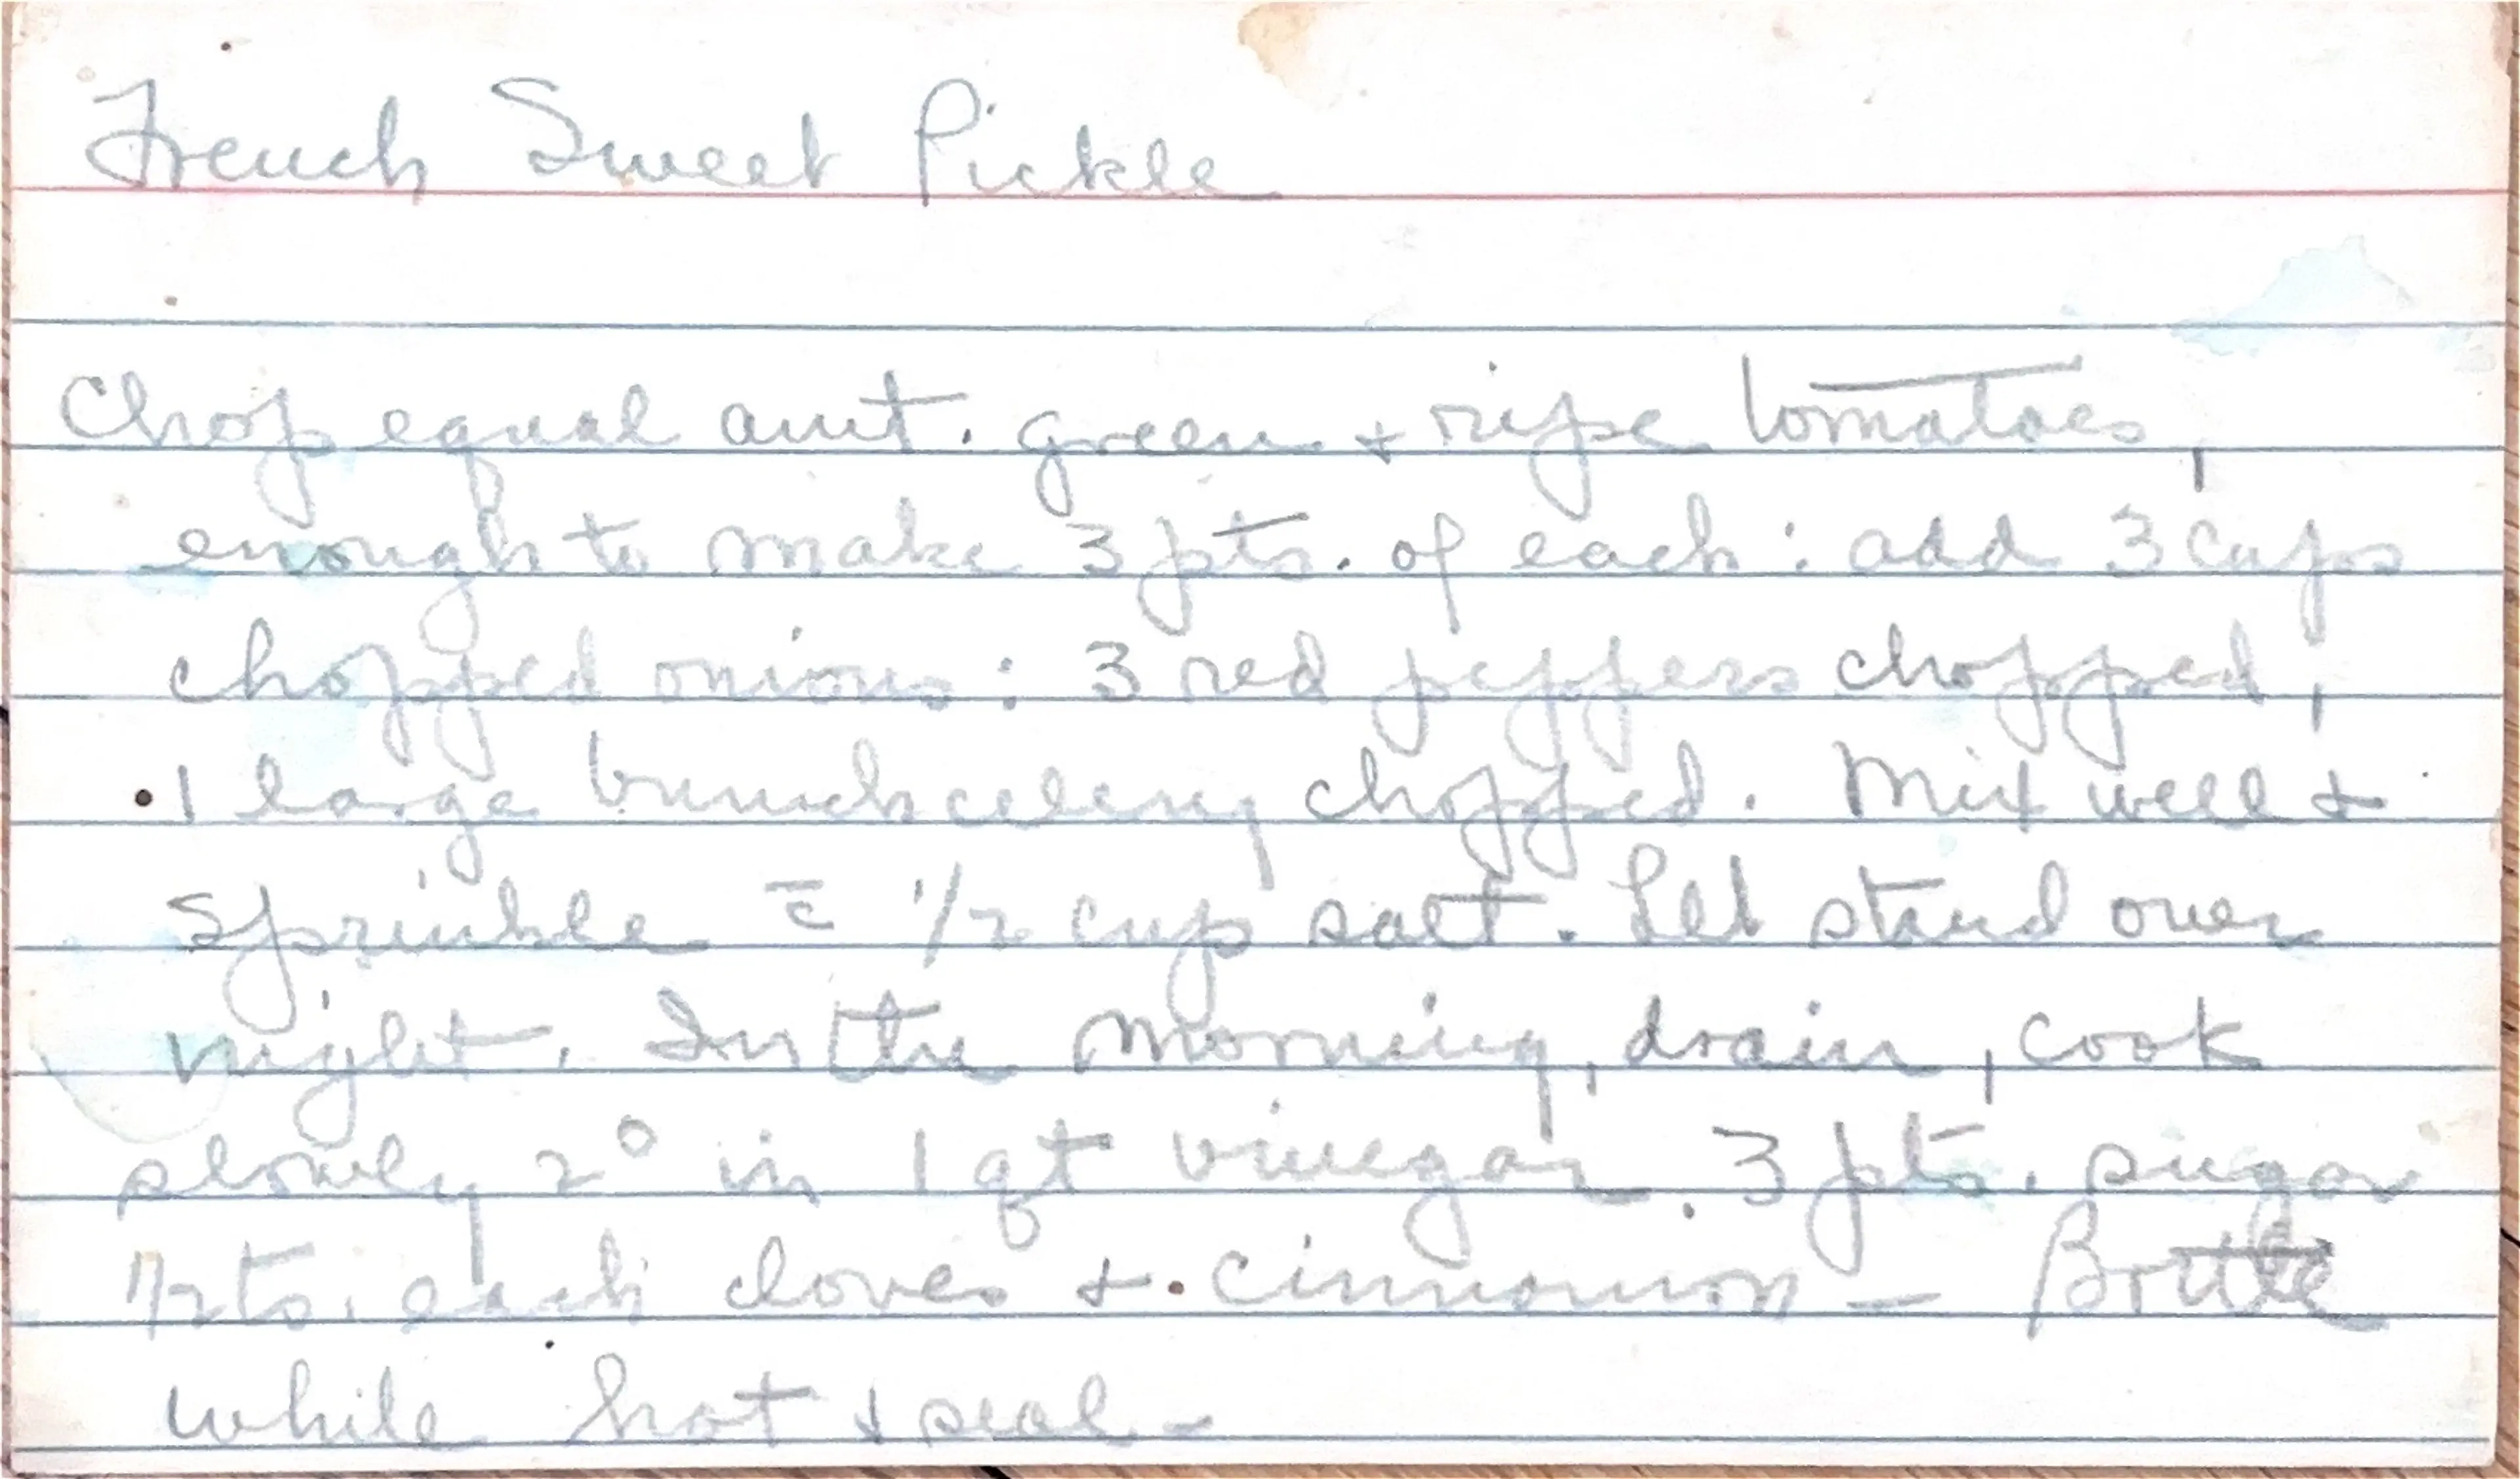 French Sweet Pickle
Chop equal amt. green + ripe tomatoes,
enough to make 3 pts. of each: add 3 cups
chopped onions: 3 red peppers chopped,
1 large bunch celery chopped. Mix well +
sprinkle c̄ 1/2 cup salt. Let stand over
night. In the morning, drain, cook
slowly 2° in 1 qt vinegar. 3 pts. sugar
1/2 ts. each cloves + cinnamon – Bottle
while hot + seal –